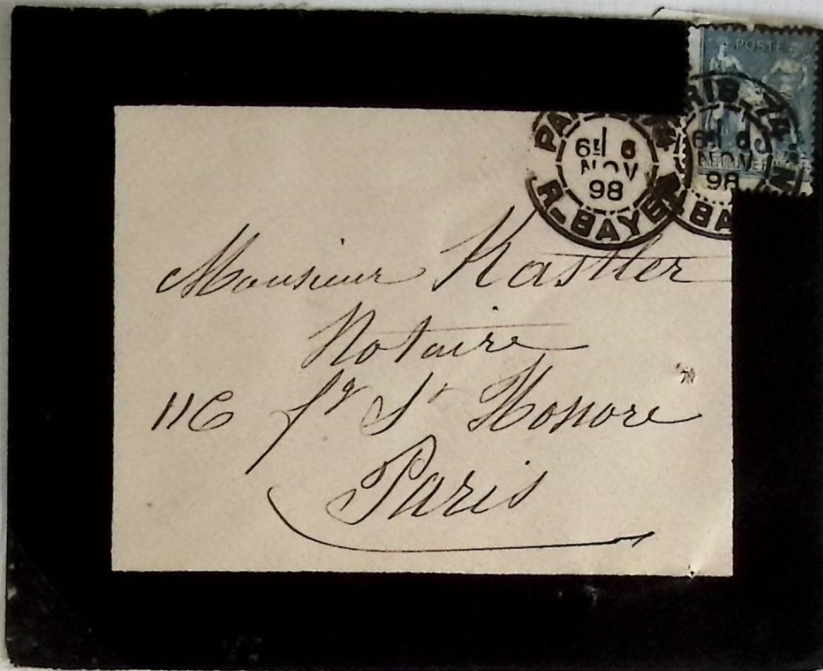 POSTE
PARIS
6E 6
NOV
98
R. BAYEN
PARIS-74
6E 6
NOV
98
R. BAYEN
Monsieur Kastler
Notaire
116 fg St Honore
Paris